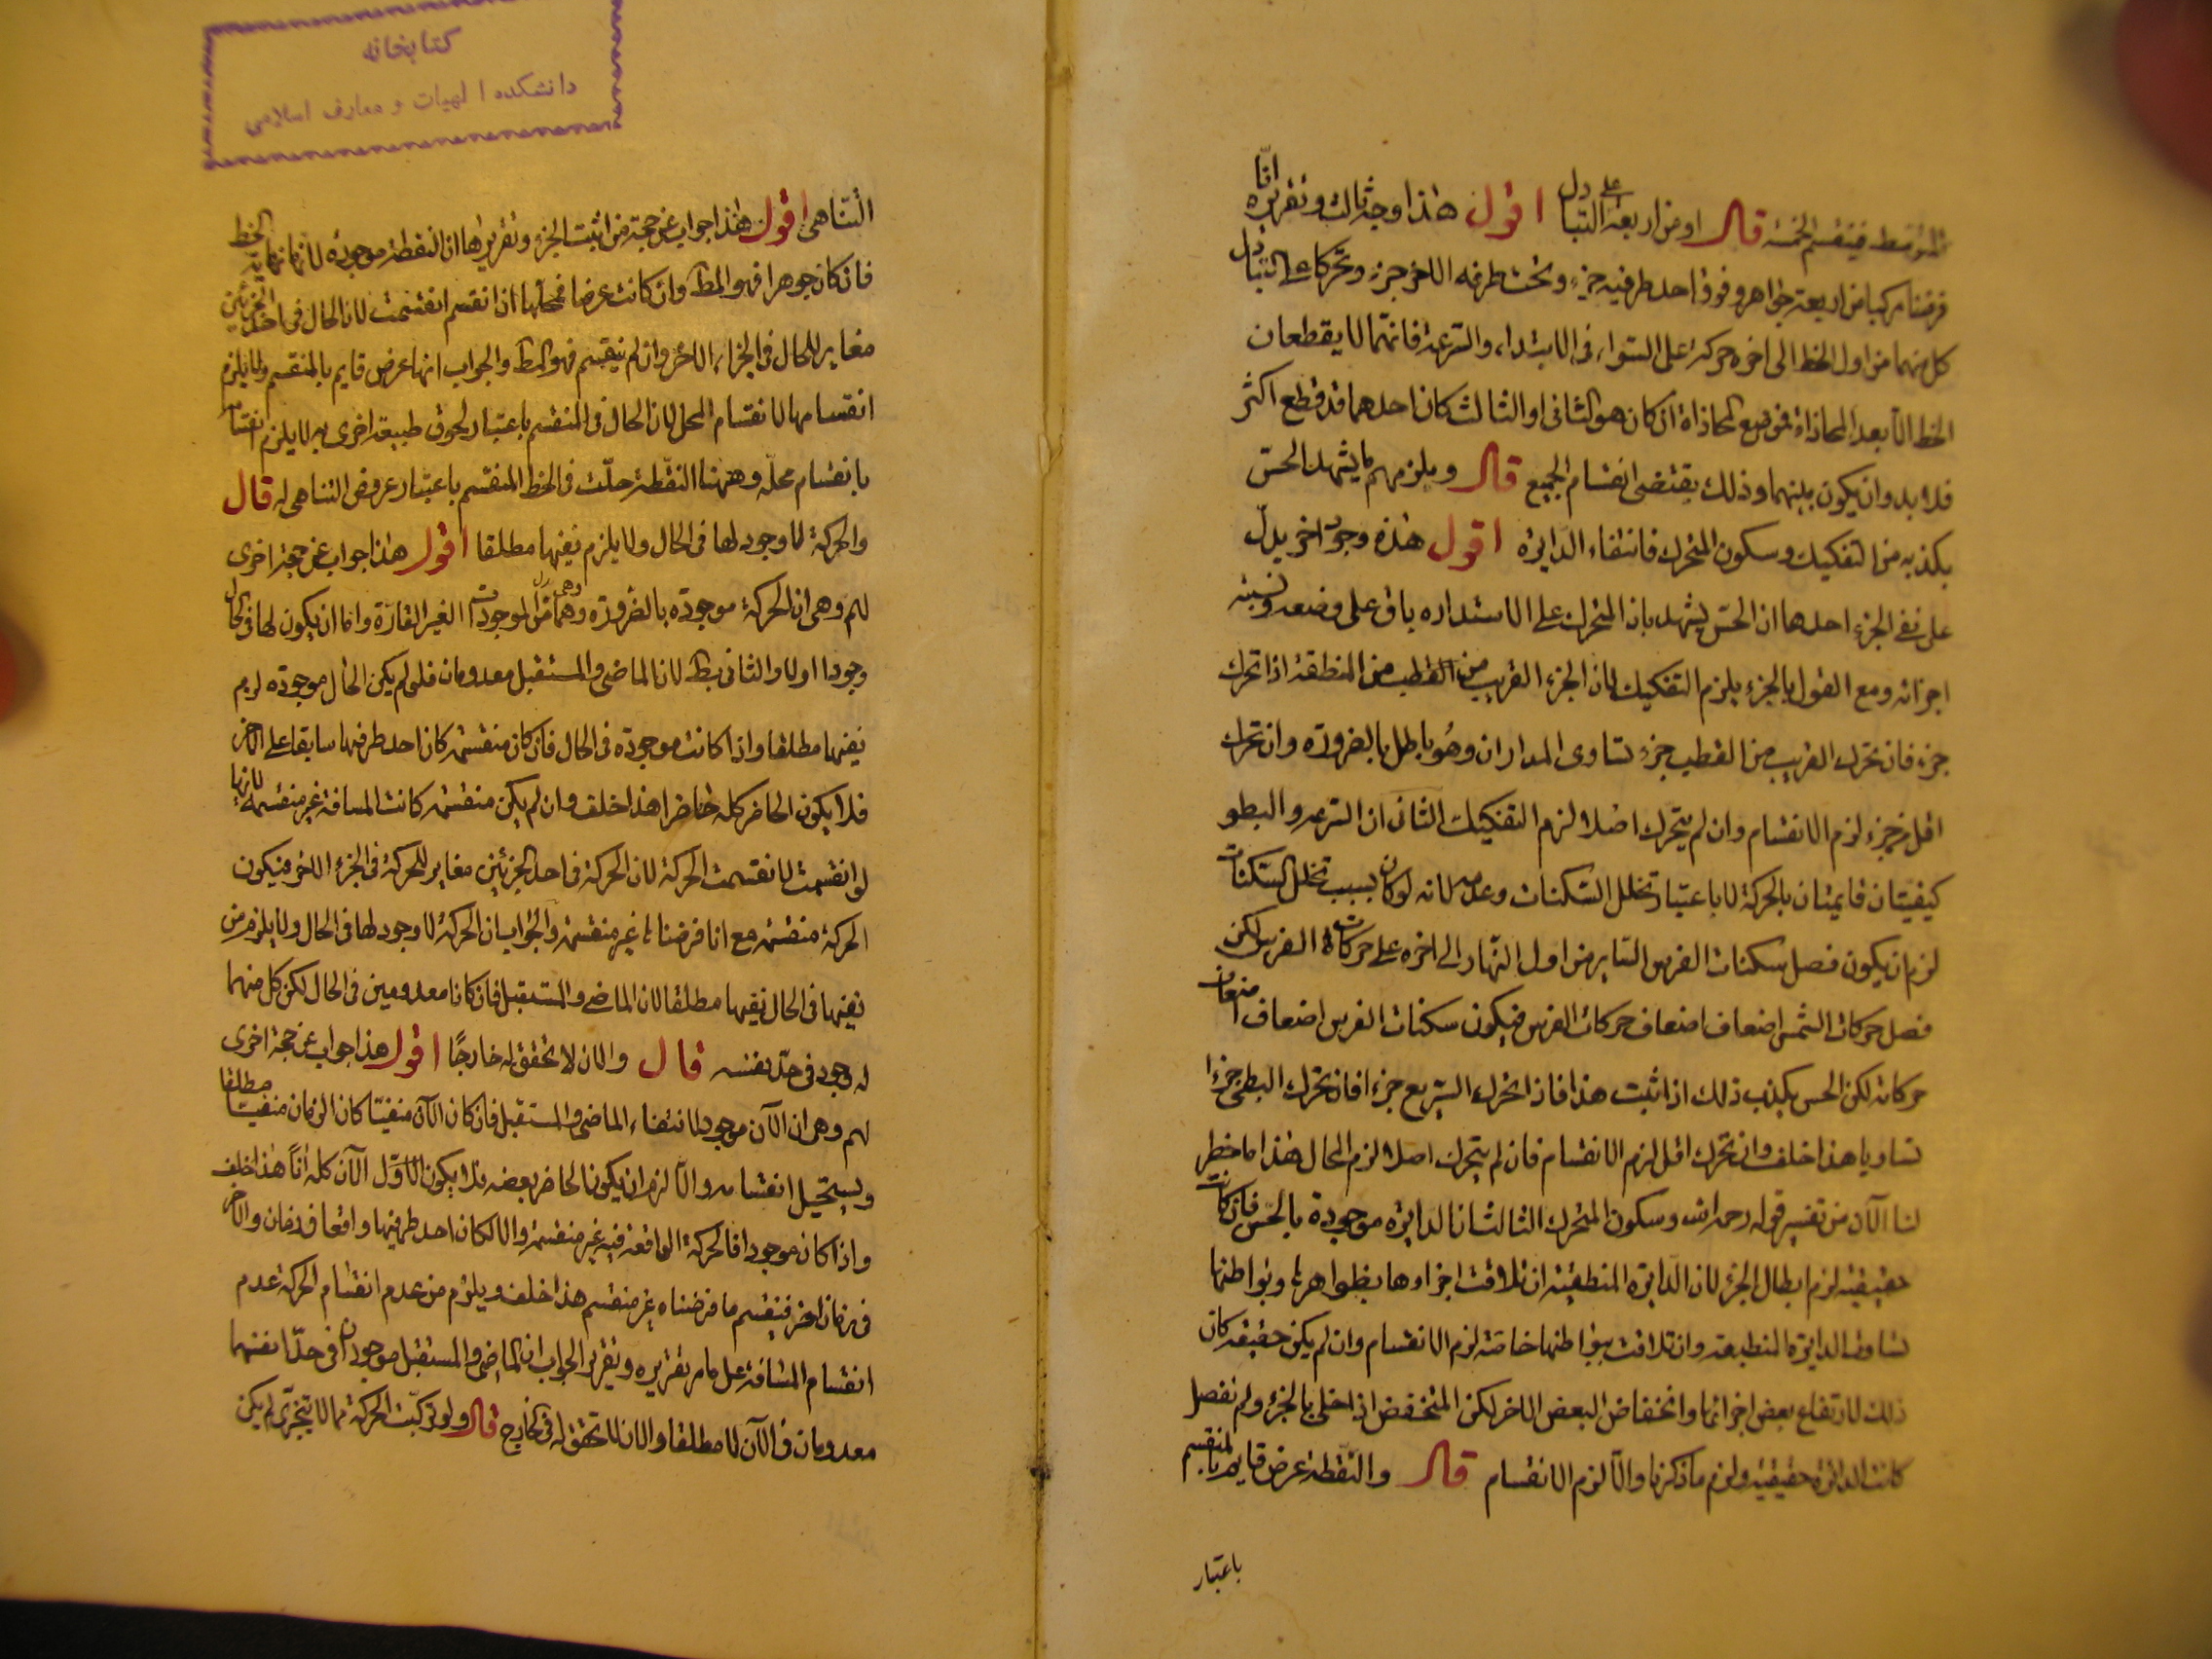 المتوسط فينقسم الخمسة قال او من اربعة على التبادل اقول هذا وجه ثالث وتقريره انا
فرضنا مركبا من اربعة جواهر وفوق احد طرفيه جزء وتحت طرفه الاخر جزء وتحركا على التبادل
كل منهما من اول الخط الى اخره حركة على السواء في الابتداء والسرعة فانهما لا يقطعان
الخط الا بعد المحاذاة فموضع المحاذاة ان كان هو الثاني او الثالث كان احدهما قد قطع اكثر
فلا بد وان يكون بينهما وذلك يقتضي انقسام الجميع قال ويلزمهم ما يشهد الحس
بكذبه من التفكيك وسكون المتحرك فانتفاء الدايرة اقول هذه وجوه اخر يدل
على نفي الجزء احدها ان الحس يشهد بان المتحرك على الاستداره باق على وضعه ونسبة
اجزائه ومع القول بالجزء يلزم التفكيك لان الجزء القريب من القطب من المنطقة اذا تحرك
جزء فان تحرك القريب من القطب جزء تساوى المداران وهو باطل بالضرورة وان تحرك
اقل من جزء لزم الانقسام وان لم يتحرك اصلا لزم التفكيك الثاني ان السرعه والبطو
كيفيتان قايمتان بالحركة لا باعتبار تخلل السكنات وعدمه لانه لو كان بسبب تخلل السكنات
لزم ان يكون فصل سكنات الفرس الساير من اول النهار الى اخره على حركاته الفرس لكن
فصل حركات الشمس اضعاف اضعاف حركات الفرس فيكون سكنات الفرس اضعاف
حركاته لكن الحس يكذب ذلك اذا ثبت هذا فاذا تحرك السريع جزء افان تحرك البطي جزءا
تساويا هذا خلف وان تحرك اقل لزم الانقسام فان لم يتحرك اصلا لزم المحال هذا ما خطر
لنا الآن من تفسير قوله رحمه الله وسكون المتحرك الثالث ان الدايره موجودة بالحس فان كانت
حقيقيه لزم ابطال الجزء لان الدايره المنطقية ان تلاقت اجزاوها بظواهرها وبواطنها
تساوت الدايرة المنطبقة وان تلاقت ببواطنها خاصة لزم الانقسام وان لم يكن حقيقه كان
ذلك لارتفاع بعض اجزائها وانخفاض البعض الاخر لكن المنخفض اذا خلي بالجزء ولم تفصل
كانت الدائرة حقيقية ولزم ما ذكرنا والا لزم الانقسام قال والنقطة عرض قايم بالمنقسم
باعتبار
كتابخانه
دانشكده الهيات و معارف اسلامى
التناهى اقول هذا جواب عن حجة من اثبت الجزء وتقريرها ان النقطة موجوده لانها نهاية الخط
فان كان جوهرا فهو المط وان كانت عرضا فمحلها ان انقسم انقسمت لان الحال في احد الجزئين
مغاير للحال في الجزء الاخر وان لم ينقسم فهو المط والجواب انها عرض قايم بالمنقسم ولا يلزم
انقسامها لانقسام المحل لان الحال في المنقسم باعتبار لحوق طبيعة اخرى به لا يلزم انقسامه
بانقسام محله وههنا النقطة حلت في الخط المنقسم باعتبار عروض التناهى له قال
والحركة لا وجود لها في الحال ولا يلزم نفيها مطلقا اقول هذا جواب عن حجة اخرى
لهم وهى ان الحركة موجوده بالضروره وهى من الموجودات الغير القارة واما ان يكون لها في الحال
وجود اولا والثاني بط لان الماضى والمستقبل معدومان فلو لم يكن الحال موجوده لزم
نفيها مطلقا واذا كانت موجوده في الحال فان كان منقسمه كان احد طرفيها سابقا على الاخر
فلا يكون الحاضر كله حاضرا هذا خلف وان لم يكن منقسمه كانت المسافة غير منقسمه لانها
لو انقسمت لانقسمت الحركة لان الحركة في احد الجزئين مغاير للحركة في الجزء الاخر فيكون
الحركة منقسمه مع انا فرضناها غير منقسمه والجواب ان الحركة لا وجود لها في الحال ولا يلزم من
نفيها في الحال نفيها مطلقا لان الماضي والمستقبل فان كانا معدومين في الحال لكن كل منهما
له وجود في حد نفسه قال والان لا تحقق له خارجا اقول هذا جواب عن حجة اخرى
لهم وهى ان الآن موجود لانتفاء الماضي والمستقبل فان كان الآن منفيا كان الزمان منفيا مطلقا
ويستحيل انقسامه والا لزم ان يكون الحاضر بعضه فلا يكون الاول الآن كله انا هذا خلف
واذا كان موجودا فالحركة الواقعة فيه غير منقسمه والا لكان احد طرفيها واقعا في زمان والاخر
في زمان اخر فينقسم ما فرضناه غير منقسم هذا خلف ويلزم من عدم انقسام الحركة عدم
انقسام المسافة على ما مر تقريره وتقرير الجواب ان الماضى والمستقبل موجودان في حد انفسهما
معدومان في الآن لا مطلقا والان لا تحقق له في الخارج قال ولو تركبت الحركة مما لا يتجزى لم يكن